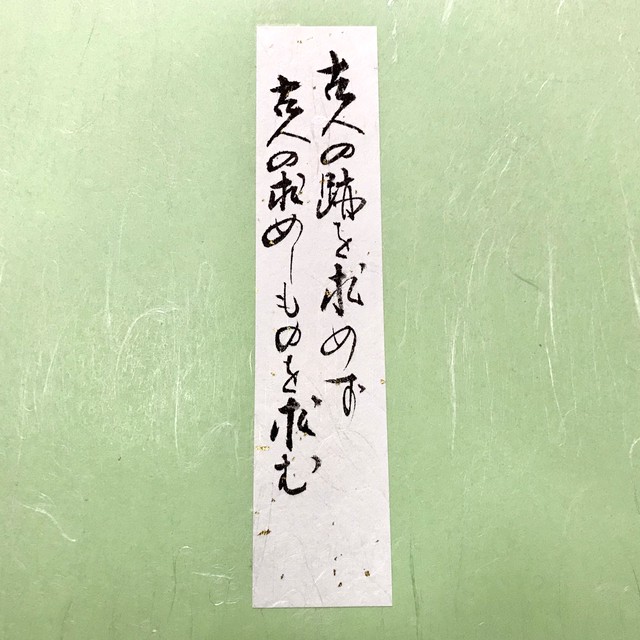 古人の跡を求めず
古人の求めしものを求む